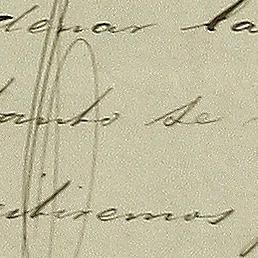 denar la
tanto se
itiremos